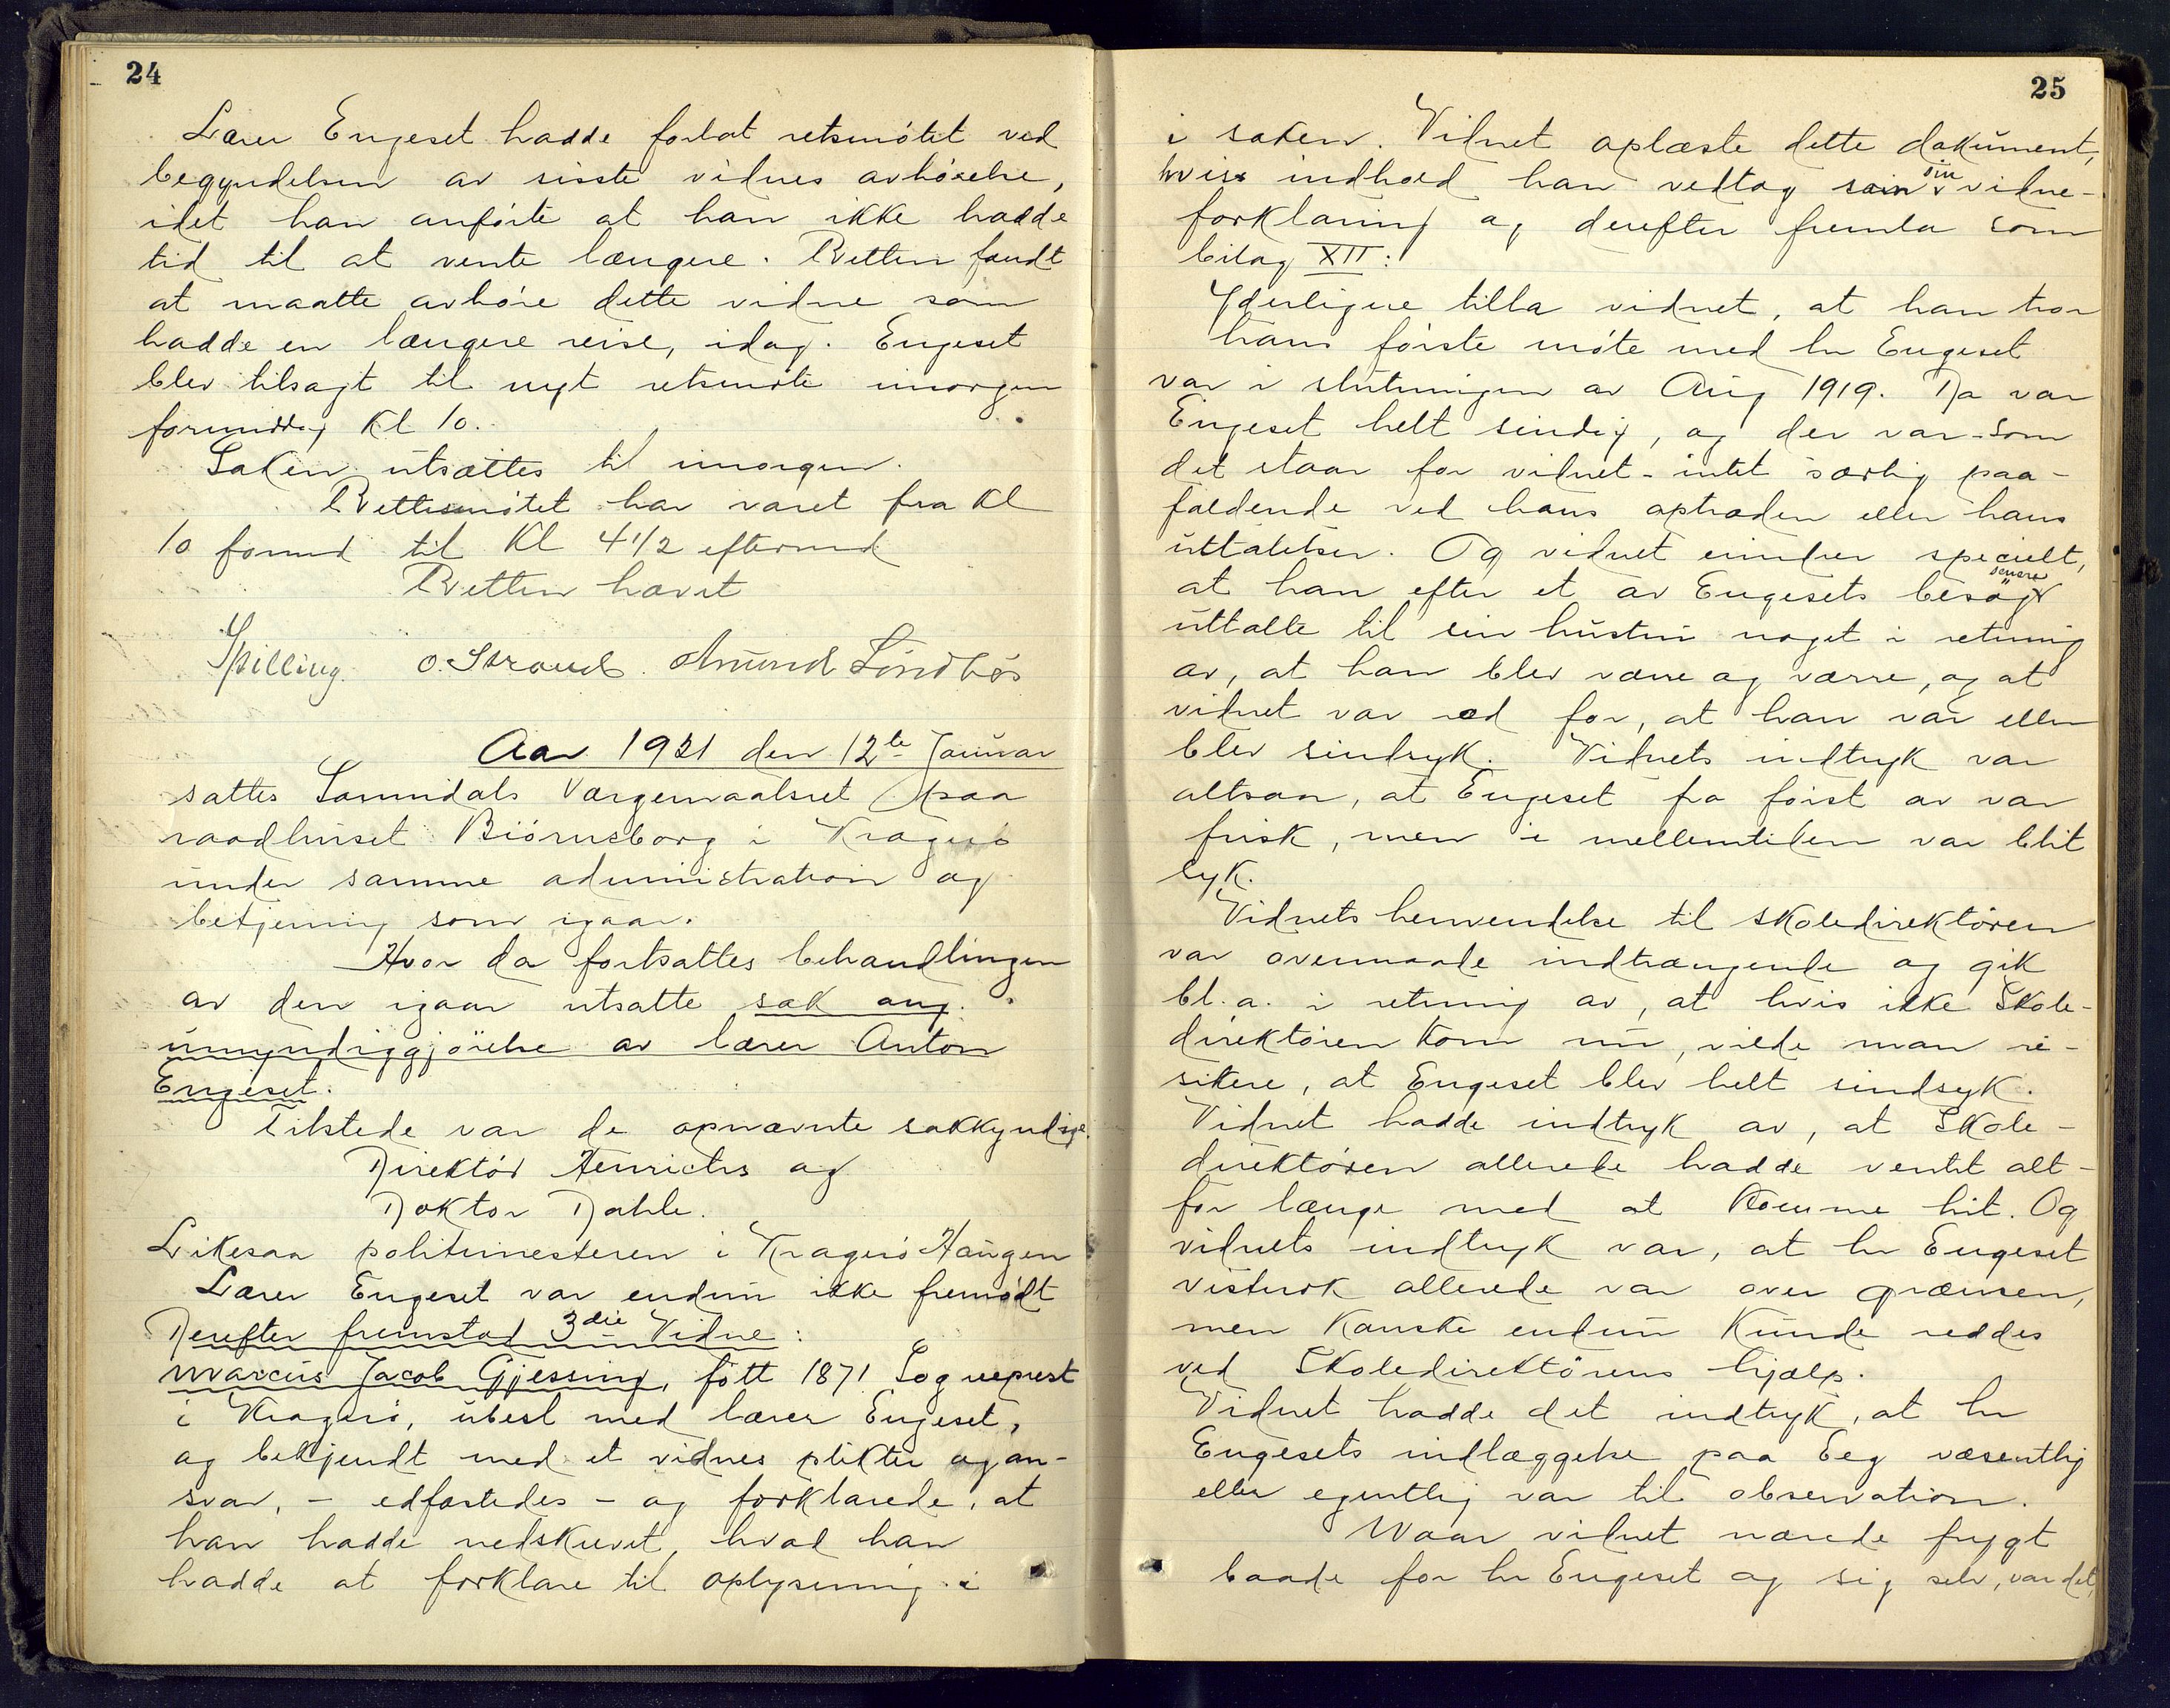 24
Lærer Engeset hadde forlat retsmötet ved
begyndelsen av sisste vidnes avhörelse,
idet han anförte at han ikke hadde
tid til at vente længere. Retten fandt
at maatte avhöre dette vidne som
hadde en længere reise, idag. Engeset
blev tilsagt til nyt retsmöte imorgen
formiddag Kl 10.
Saken utsættes til imorgen.
Rettsmötet har varet fra Kl
10 formd til Kl 4 1/2 eftermd
Retten hævet
Spilling. O. Strand. Amund Lindhös
Aar 1921 den 12te Januar
sattes Sannidals Vergemaalsret paa
raadhuset Biörnsborg i Kragerö
under samme administration og
betjening som igaar.
Hvor da fortsattes behandlingen
av den igaar utsatte sak ang.
umyndiggjörelse av lærer Anton
Engeset.
Tilstede var de opnævnte sakkyndige
Direktör Henrichs og
Doktor Dahle.
Likesaa politimesteren i Kragerö Haugen
Lærer Engeset var endnu ikke fremödt
Derefter fremstod 3die Vidne:
Marcus Jacob Gjessing, fött 1871 Sogneprest
i Kragerö, ubesl med lærer Engeset,
og bekjendt med et vidnes plikter og an-
svar, - edfæstedes - og forklarede, at
han hadde nedskrevet, hvad han
hadde at forklare til oplysning i
25
i saken. Vidnet oplæste dette dokument,
hvis indhold han vedtog som sin vidne-
forklaring og derefter fremla som
bilag XII:
Yderligere tilla vidnet, at han tror
hans förste möte med hr Engeset
var i slutningen av Aug 1919. Da var
Engeset helt sindig, og der var - som
det staar for vidnet - intet særlig paa-
faldende ved hans optræden eller hans
uttalelser. Og vidnet erindrer specielt,
at han efter et av Engesets senere besög
uttalte til sin hustru noget i retning
av, at han blev værre og værre, og at
vidnet var ræd for, at han var eller
blev sindsyk. Vidnets indtryk var
altsaa, at Engeset fra först av var
frisk, men i mellemtiden var blit
syk.
Vidnets henvendelse til skoledirektören
var overmaade indtrængende og gik
bl.a. i retning av, at hvis ikke Skole-
direktören kom nu, vilde man ri-
sikere, at Engeset blev helt sindsyk.
Vidnet hadde indtryk av, at Skole-
direktören allerede hadde ventet alt-
for længe med at komme hit. Og
vidnets indtryk var, at hr Engeset
vistnok allerede var over grænsen,
men kanske endnu kunde reddes
ved Skoledirektörens hjælp.
Vidnet hadde det indtryk, at hr
Engesets indlæggelse paa Eeg væsentlig
eller egentlig var til observation.
Naar vidnet nærede frygt
baade for hr Engeset og sig selv, var det,